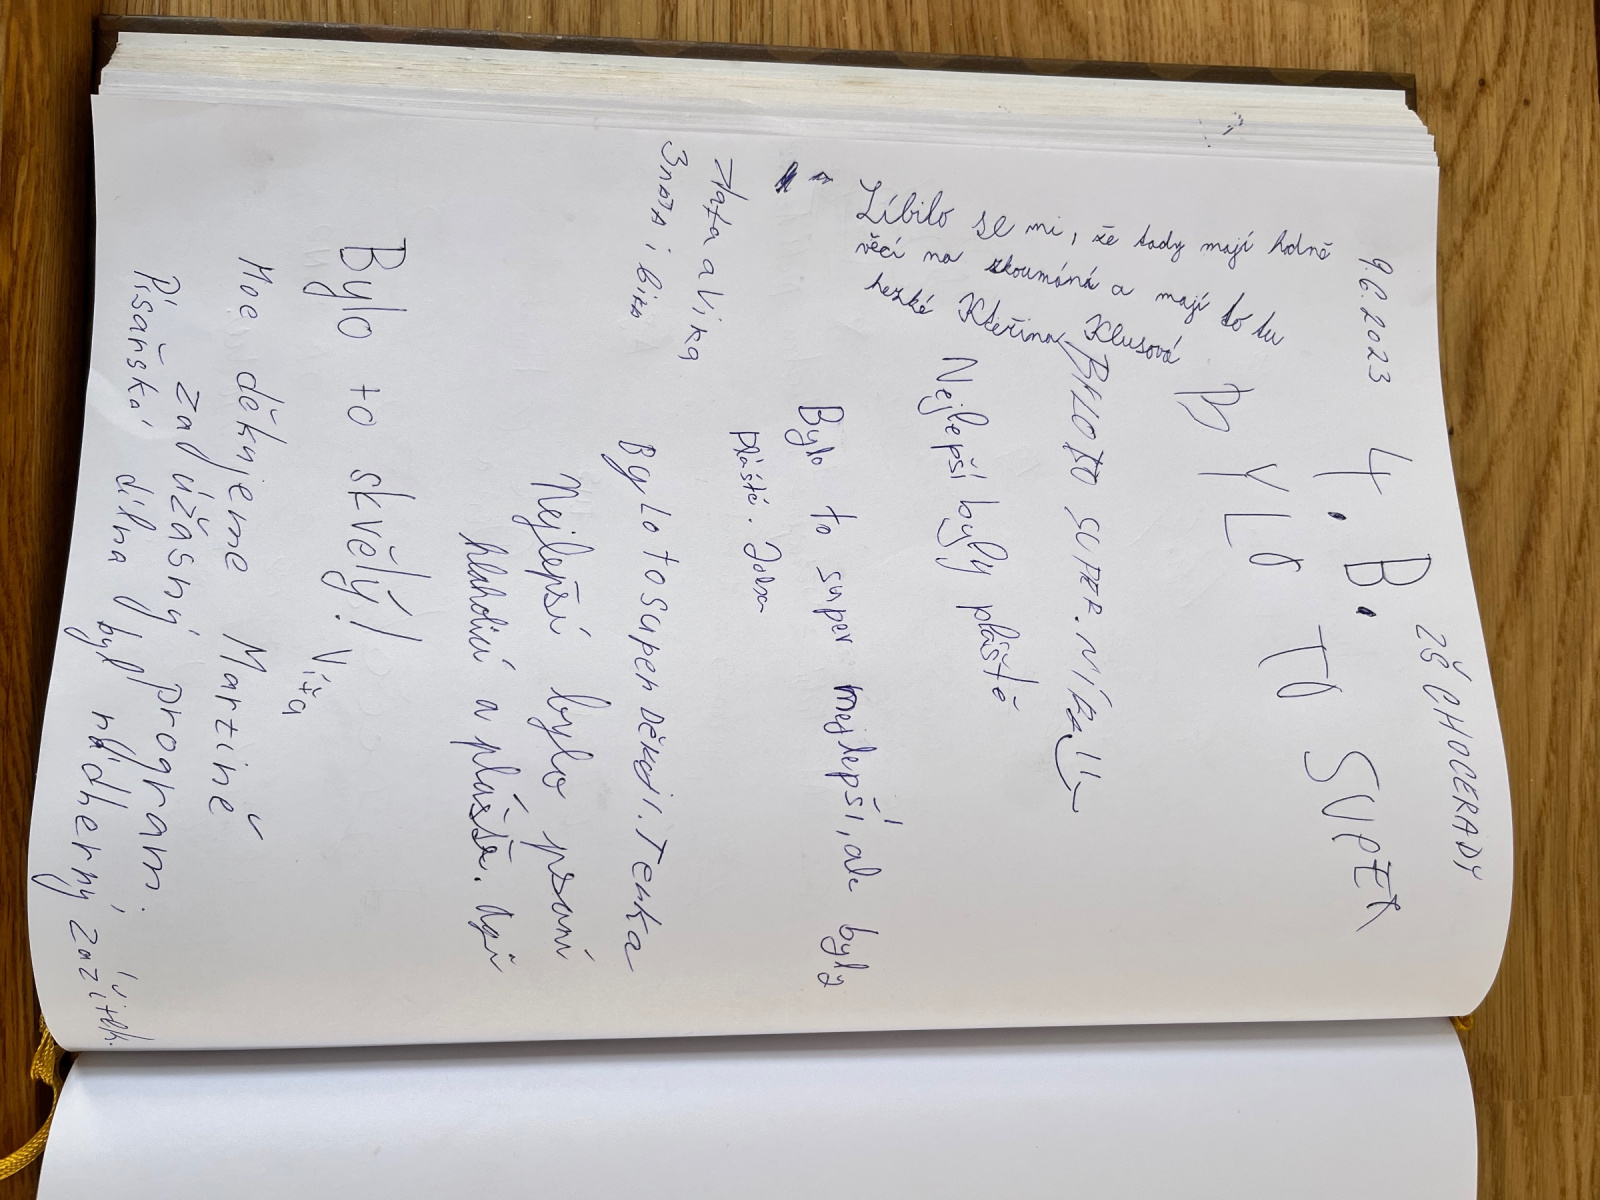 9.6.2023 4. B. ZŠ CHOCERADY
BYLO TO SUPER
Líbilo se mi, že tady mají hodně
věcí na zkoumáná a mají to tu
hezké Kteřina Klusová
BYLO TO SUPER.
Nejlepší byly pláště
Bylo to super mejlepší, ale byly
pláště.
Zlata a Vika
Злата і Віка
Bylo to super Děkuji. Tenka
Nejlepší bylo psaní
hlaholicí a plášťe.
Bylo to skvělý! Víťa
Moc děkujeme Marzině
za úžasný program.
Písařská dílna byl nádherný zážitek.